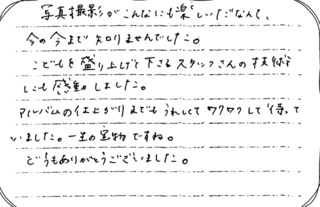 写真撮影がこんなにも楽しいだなんて、
今の今まで知りませんでした。
こどもを盛り上げて下さるスタッフさんの技術
にも感動しました。
アルバムの仕上がりまでもうれしくてワクワクして待って
いました。一生の宝物ですね。
どうもありがとうございました。